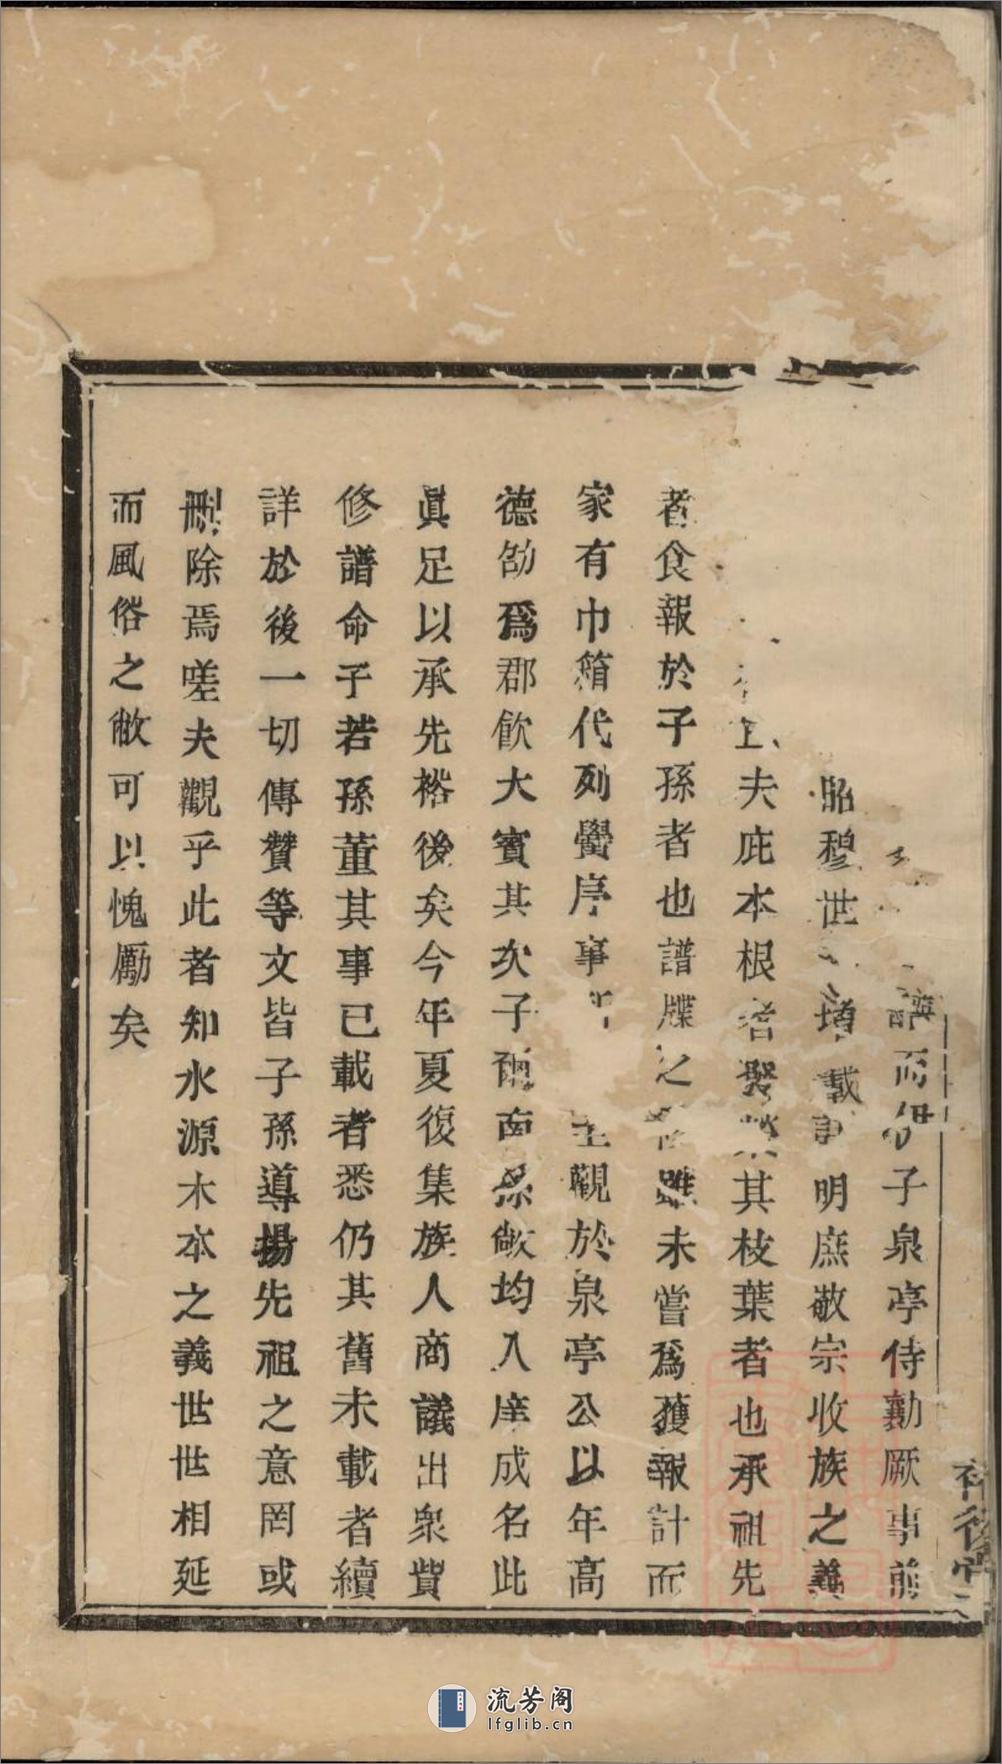 譜而伊子泉亭侍勷厥事前
昭穆世載詳明庶敬宗收族之義
夫庇本根者繄其枝葉者也承祖先
者食報於子孫者也譜牒之雖未嘗爲獲報計而
家有巾箱代列黌序事觀於泉亭公以年高
德劭爲郡飲大賓其次子南孫敞均入庠成名此
眞足以承先裕後矣今年夏復集族人商議出衆貲
修譜命子若孫董其事已載者悉仍其舊未載者續
詳於後一切傳贊等文皆子孫導揚先祖之意罔或
刪除焉嗟夫觀乎此者知水源木本之義世世相延
而風俗之敝可以愧勵矣
裕後堂
流芳阁
lfglib.cn